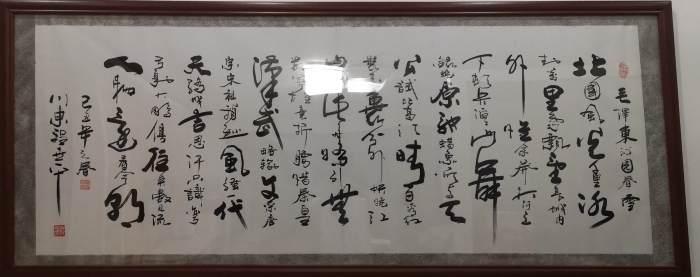 毛澤東沁园春雪
北國風光千里冰
封万里雪飘望長城内
外惟余莽莽大河上
下頓失滔滔山舞
銀蛇原馳蜡象欲与天
公試比高須晴日看红
装素裹分外妖娆江
山如此多嬌引無
數英雄竞折腰惜秦皇
漢武略输文采唐
宗宋祖稍逊風騷一代
天骄成吉思汗只識彎
弓射大鵰俱往矣數风流
人物还看今朝
己丑年之春
川東